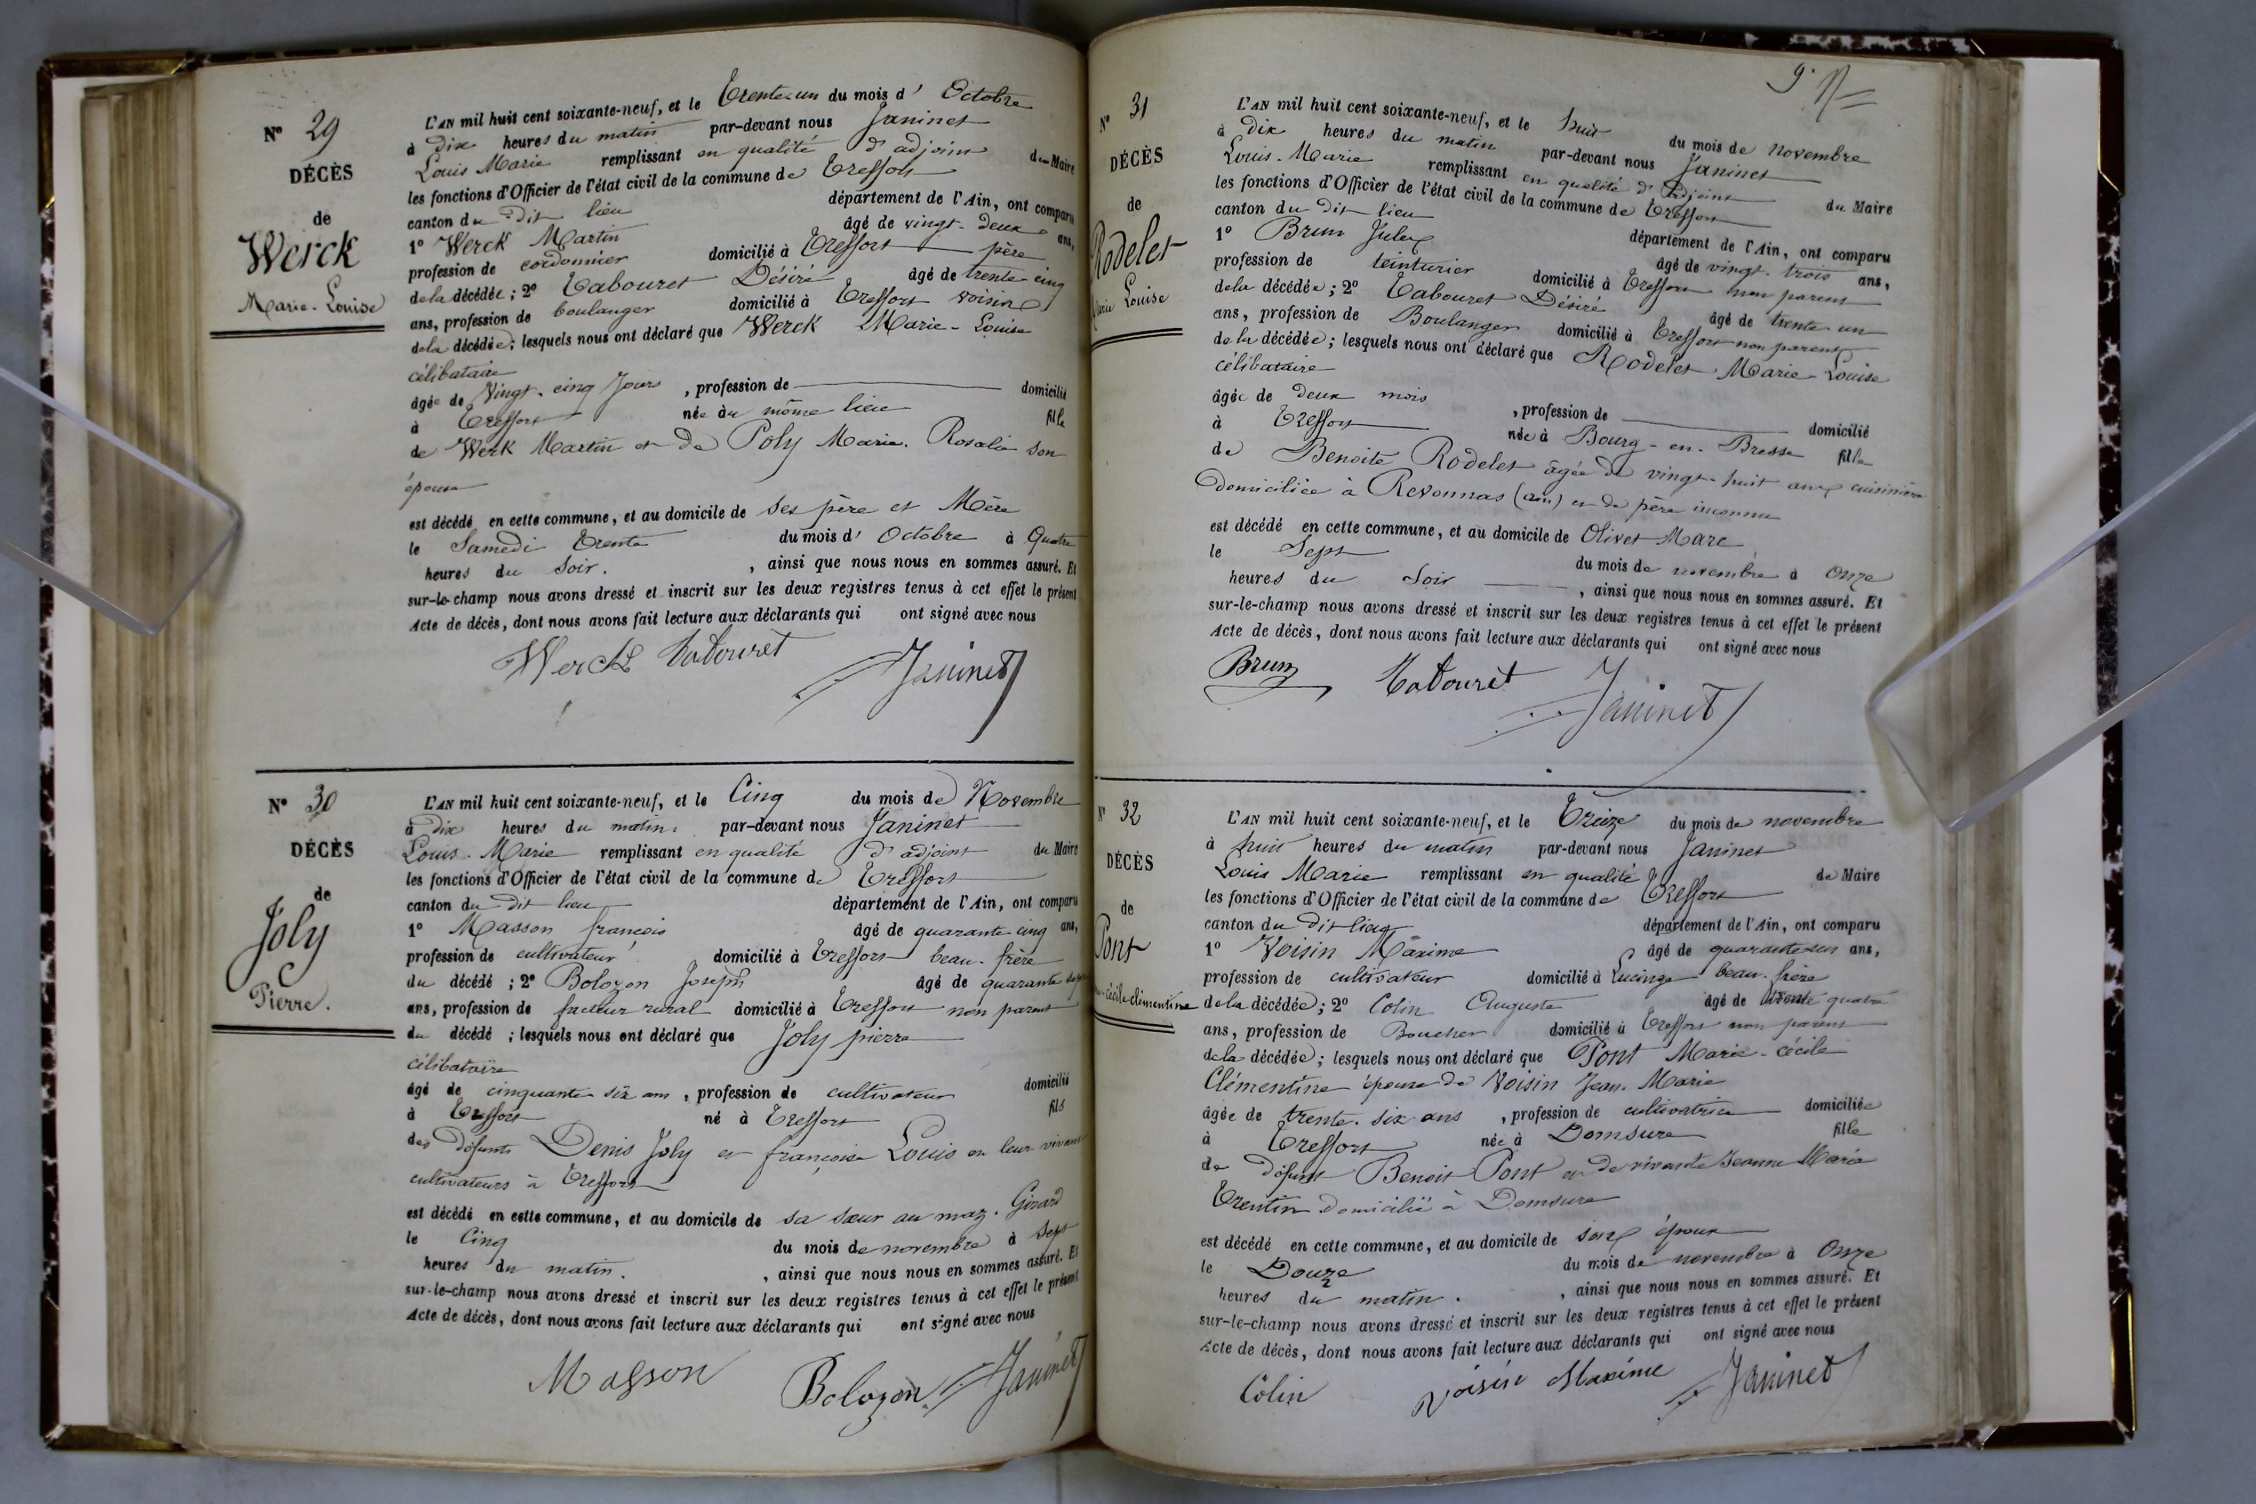 N° 29
DÉCÈS
de
Werck
Marie-Louise
L'AN mil huit cent soixante-neuf, et le trente-un du mois d' Octobre
à Dix heures du matin par-devant nous Janinet
Louis Marie remplissant en qualité d'adjoint du Maire
les fonctions d'Officier de l'état civil de la commune de Treffort
canton du dit lieu département de l'Ain, ont comparu
1° Werck Martin âgé de vingt-deux ans,
profession de cordonnier domicilié à Treffort père
de la décédée; 2° Tabouret Désiré âgé de trente cinq
ans, profession de boulanger domicilié à Treffort voisin
de la décédée; lesquels nous ont déclaré que Werck Marie-Louise
célibataire
âgée de Vingt-cinq jours, profession de domicilié
à Treffort née au même lieu fille
de Werk Martin et de Poly Marie Rosalie son
épouse
est décédé en cette commune, et au domicile de ses père et Mère
le Samedi trente du mois d' Octobre à Quatre
heures du Soir., ainsi que nous nous en sommes assuré. Et
sur-le-champ nous avons dressé et inscrit sur les deux registres tenus à cet effet le présent
Acte de décès, dont nous avons fait lecture aux déclarants qui ont signé avec nous
Werck Tabouret
Janinet
N° 30
DÉCÈS
de
Joly
Pierre.
L'AN mil huit cent soixante-neuf, et le Cinq du mois de Novembre
à dix heures du matin par-devant nous Janinet
Louis-Marie remplissant en qualité d'adjoint du Maire
les fonctions d'Officier de l'état civil de la commune de Treffort
canton du dit lieu département de l'Ain, ont comparu
1° Masson françois âgé de quarante cinq ans,
profession de cultivateur domicilié à Treffort beau-frère
du décédé; 2° Bolozon Joseph âgé de quarante
ans, profession de facteur rural domicilié à Treffort non parent
du décédé; lesquels nous ont déclaré que Joly pierre
célibataire
âgé de cinquante six ans, profession de cultivateur domicilié
à Treffort né à Treffort fils
des défunts Denis Joly et françoise Louis en leur vivant
cultivateurs à Treffort
est décédé en cette commune, et au domicile de sa sœur au maz-Girard
le Cinq du mois de novembre à Sept
heures du matin., ainsi que nous nous en sommes assuré. Et
sur-le-champ nous avons dressé et inscrit sur les deux registres tenus à cet effet le présent
Acte de décès, dont nous avons fait lecture aux déclarants qui ont signé avec nous
Masson Bolozon Janinet
9.
N° 31
DÉCÈS
de
Rodelet
Marie Louise
L'AN mil huit cent soixante-neuf, et le huit du mois de novembre
à Dix heures du matin par-devant nous Janinet
Louis-Marie remplissant en qualité d'adjoint du Maire
les fonctions d'Officier de l'état civil de la commune de Treffort
canton du dit lieu département de l'Ain, ont comparu
1° Brun Jules âgé de vingt-trois ans,
profession de teinturier domicilié à Treffort non parent
de la décédée; 2° Tabouret Désiré âgé de trente un
ans, profession de Boulanger domicilié à Treffort non parent
de la décédée; lesquels nous ont déclaré que Rodelet Marie-Louise
célibataire
âgée de deux mois, profession de domicilié
à Treffort née à Bourg-en-Bresse fille
de Benoite Rodelet âgée de vingt-huit ans cuisinière
domiciliée à Revonnas (ain) et de père inconnu
est décédé en cette commune, et au domicile de Olivet Marc
le Sept du mois de novembre à Onze
heures du Soir, ainsi que nous nous en sommes assuré. Et
sur-le-champ nous avons dressé et inscrit sur les deux registres tenus à cet effet le présent
Acte de décès, dont nous avons fait lecture aux déclarants qui ont signé avec nous
Brun Tabouret
Janinet
N° 32
DÉCÈS
de
Pont
cécile-clémentine
L'AN mil huit cent soixante-neuf, et le Treize du mois de novembre
à huit heures du matin par-devant nous Janinet
Louis Marie remplissant en qualité de Maire
les fonctions d'Officier de l'état civil de la commune de Treffort
canton du dit lieu département de l'Ain, ont comparu
1° Voisin Maxime âgé de quarante-un ans,
profession de cultivateur domicilié à Lucinge beau-frère
de la décédée; 2° Colin Auguste âgé de trente quatre
ans, profession de Boucher domicilié à Treffort non parent
de la décédée; lesquels nous ont déclaré que Pont Marie-cécile
Clémentine épouse de Voisin Jean-Marie
âgée de trente-six ans, profession de cultivatrice domiciliée
à Treffort née à Domsure fille
de défunt Benoit Pont et de vivante Jeanne Marie
Trentin domicilié à Domsure
est décédé en cette commune, et au domicile de son époux
le Douze du mois de novembre à Onze
heures du matin., ainsi que nous nous en sommes assuré. Et
sur-le-champ nous avons dressé et inscrit sur les deux registres tenus à cet effet le présent
Acte de décès, dont nous avons fait lecture aux déclarants qui ont signé avec nous
Colin Voisin Maxime Janinet